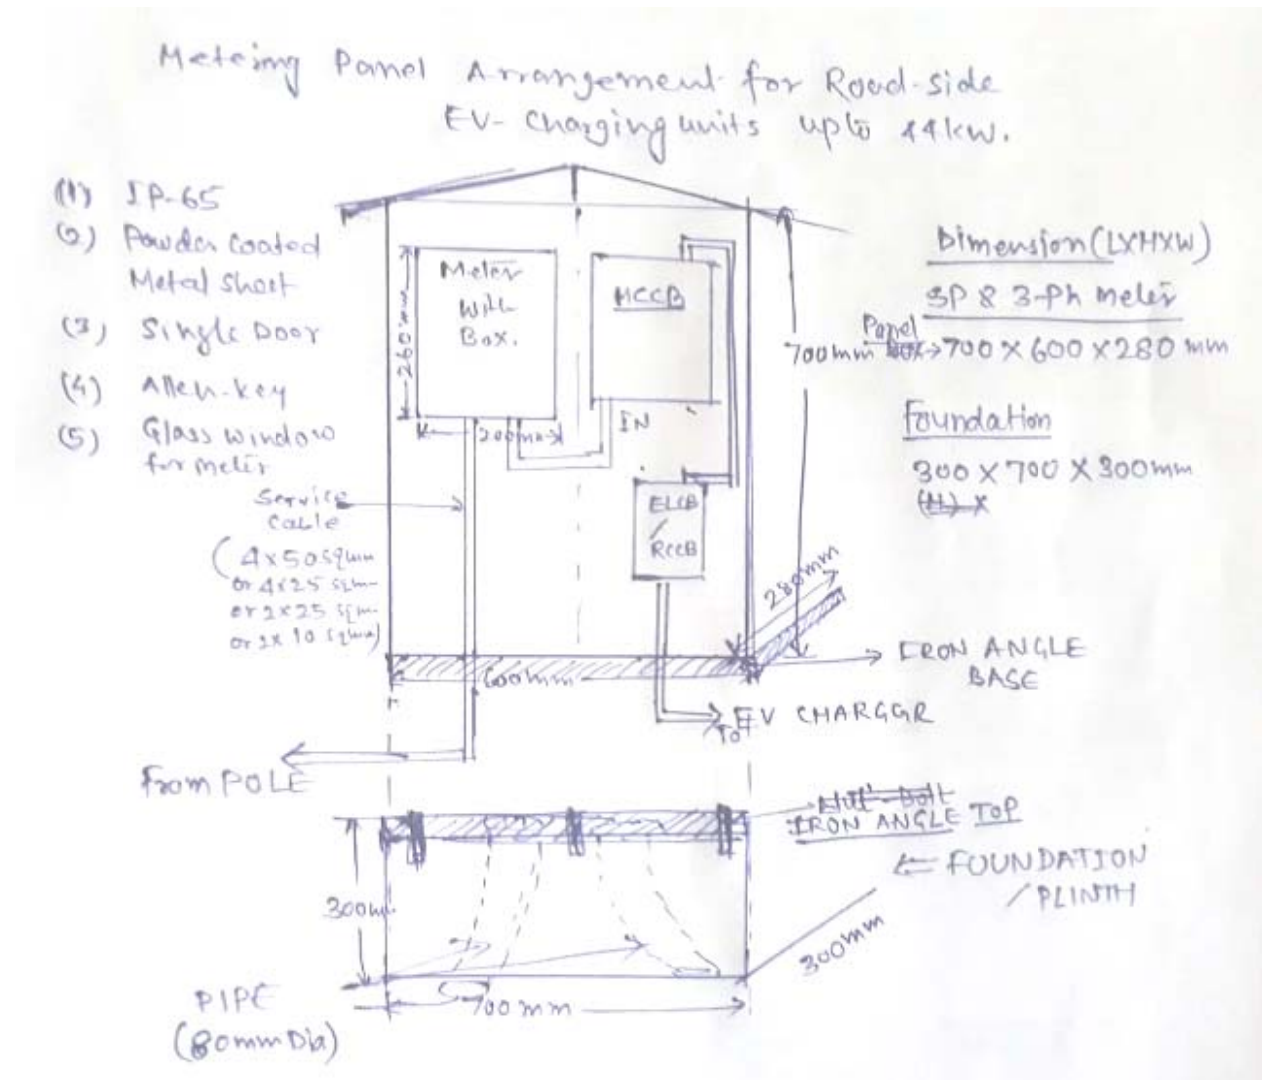 Meteimg Panel Arrangement for Road-side
EV-Charging units upto 44kW.
(1) IP-65
(2) Powder coated
Metal sheet
(3) Single Door
(4) Allen-key
(5) Glass window
for meter
Service
Cable
(4x50 sqmm
or 4x25 sqm
or 2x25 sqm
or 2x10 sqmm)
Meter
With
Box.
260mm
200mm
MCCB
IN
ELCB
/
RCCB
700mm
Dimension (LXHXW)
SP & 3-Ph meter
Panel
→700 X 600 X 280 mm
Foundation
300 X 700 X 300mm
(H) X
280mm
IRON ANGLE
BASE
600mm
To EV CHARGGR
From POLE
Nut-Bolt
IRON ANGLE TOP
FOUNDATION
/PLINTH
300m
300mm
700mm
PIPE
(80mm Dia)